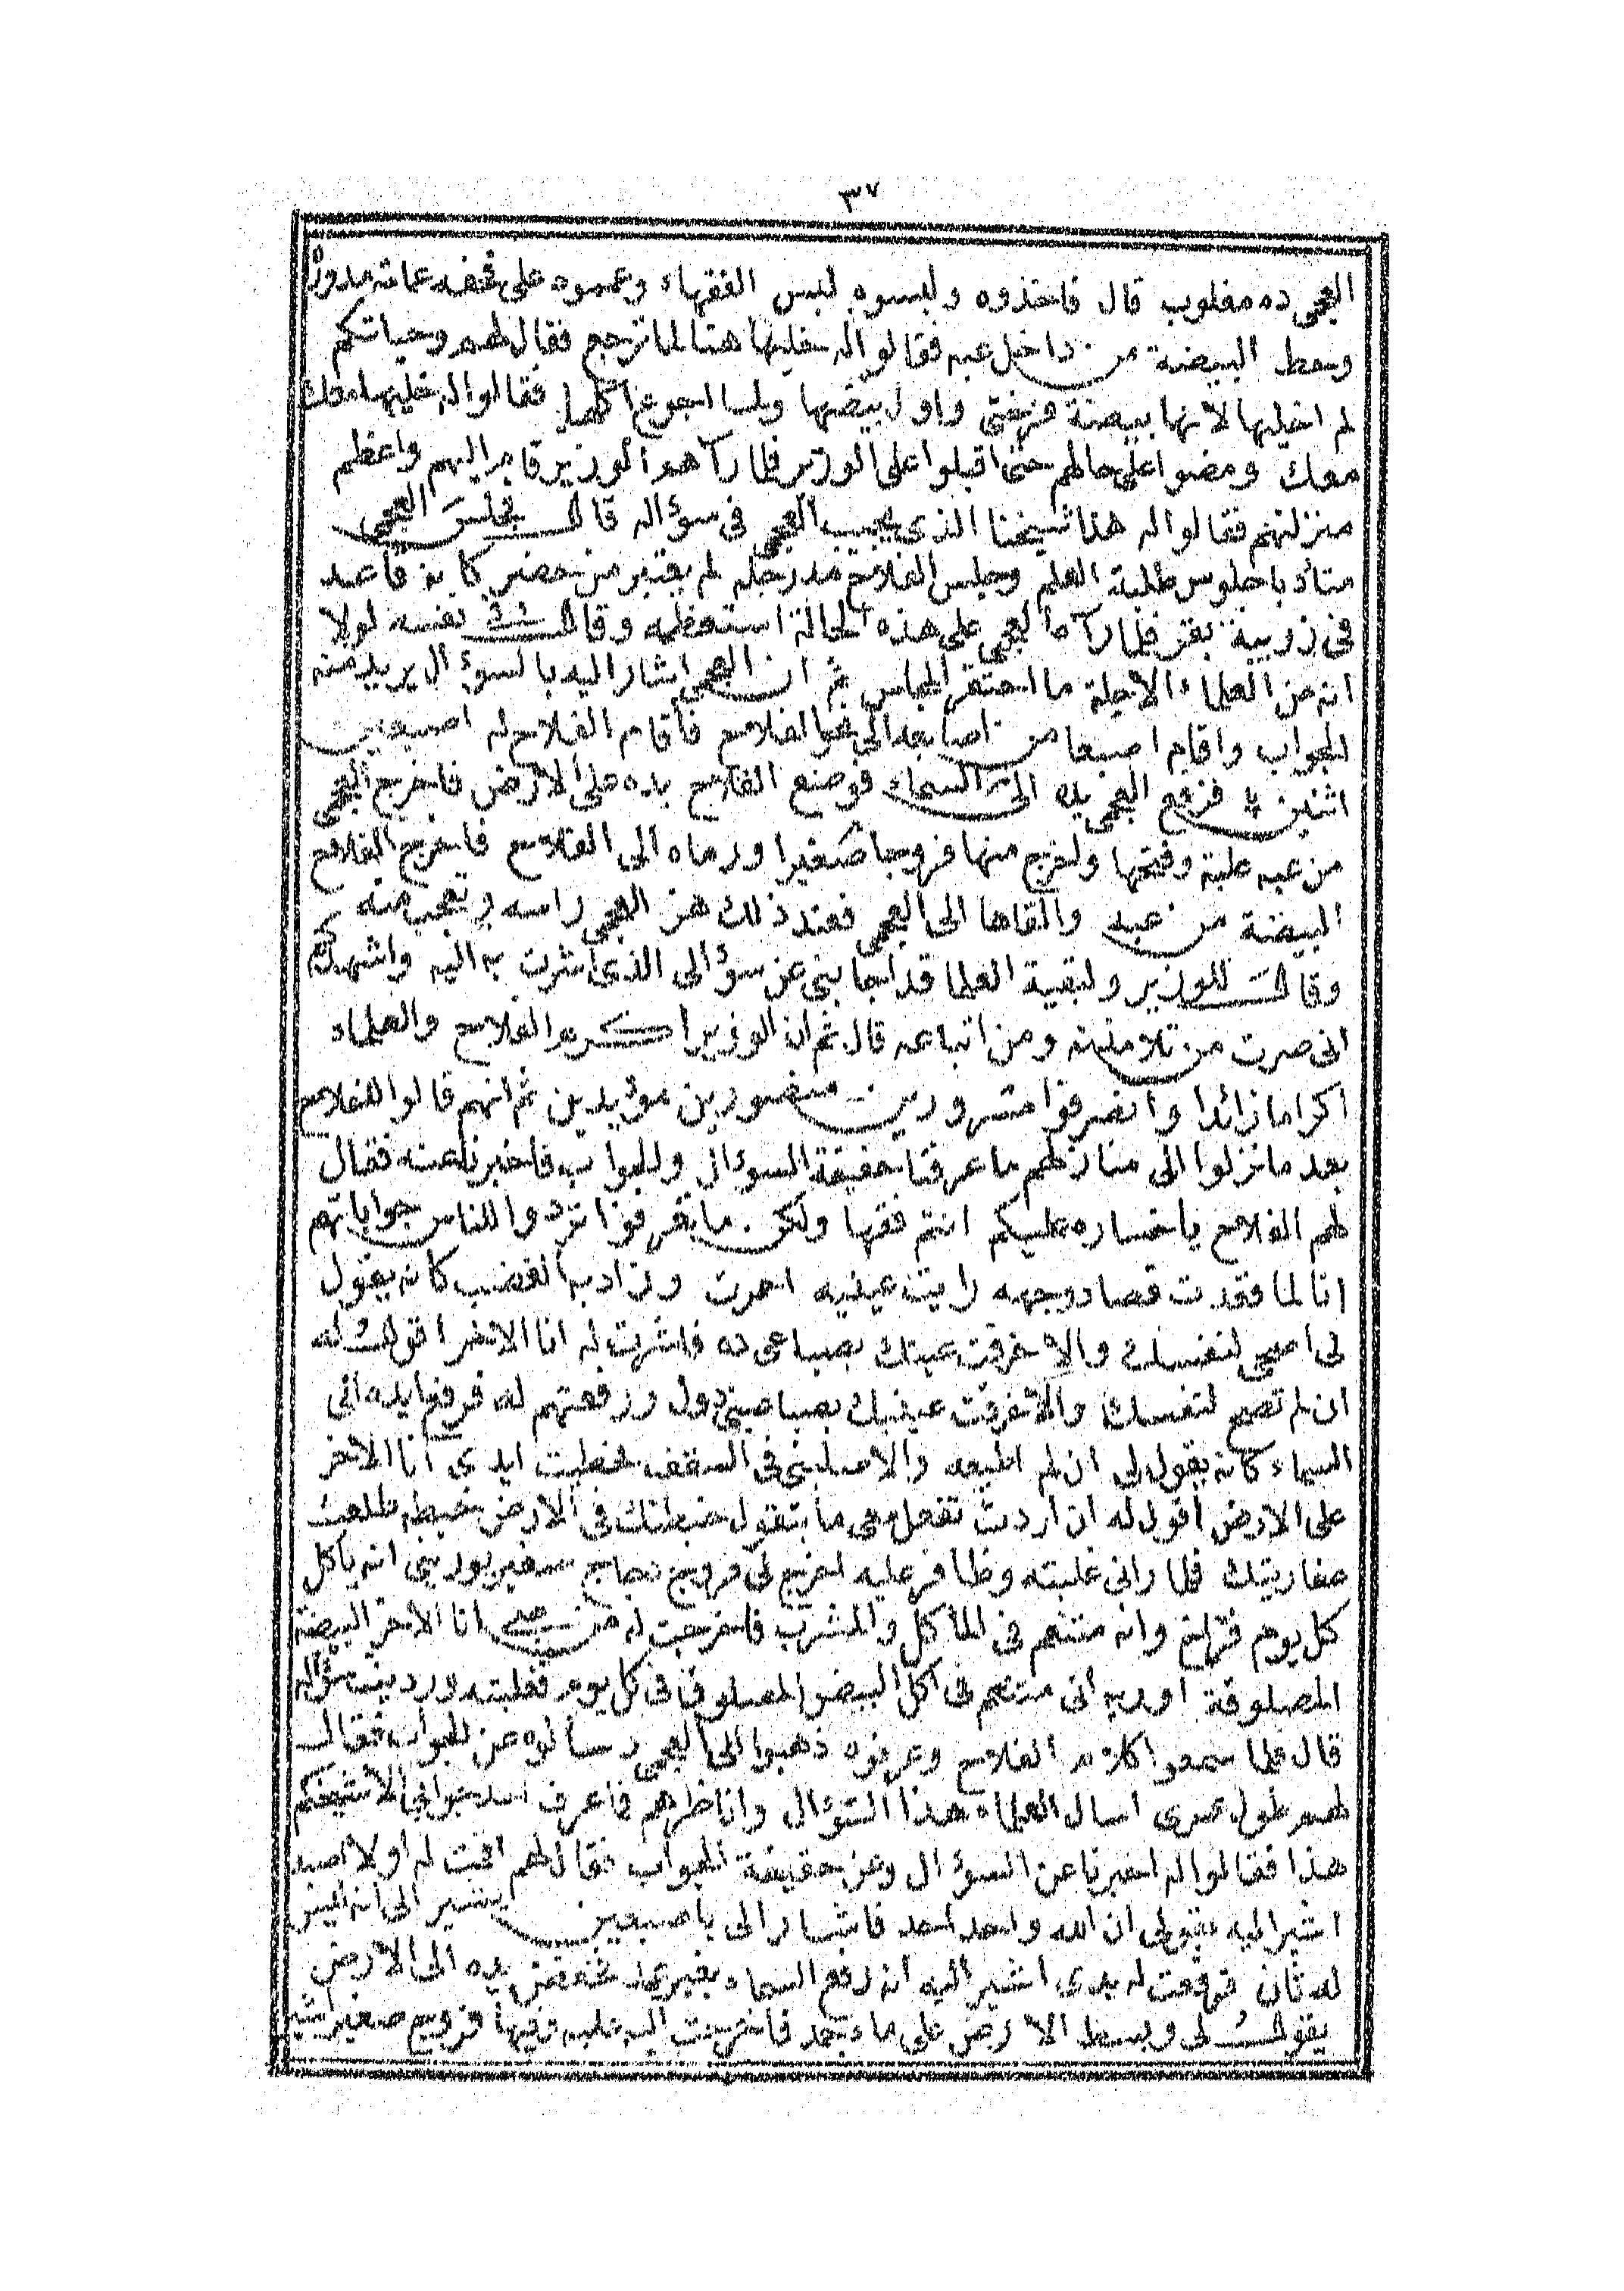 ٣٧
العجمى ده مغلوب قال فاخذوه ولبسوه لبس الفقهاء وعمموه على قحفه عمامه مدوره
وحط البيضة من داخل عبه فقالوا له خليها هنا لما ترجع فقال لهم وحياتكم
لم اخليها لانها بيضة فرختى واول بيضها ولما اجوع اكلها فقالوا له خليها معك
معك ومضوا على حالهم حتى اقبلوا على الوزير فلما رآهم الوزير قام اليهم واعظم
منزلتهم فقالوا له هذا شيخنا الذى يجيب العجمى فى سؤاله قال فجلس العجمى
متأدبا جلوس طلبة العلم وجلس الفلاح مد رجله لم يعتبر من حضر كانه قاعد
فى زريبة بقر فلما رآه العجمى على هذه الحالة استعظمه وقال فى نفسه لولا
انه من العلماء الاجلة ما احتقر المجلس ثم ان العجمى اشار اليه بالسوءال يريد منه
الجواب واقام اصبعا من اصابعه الى نحو الفلاح فأقام الفلاح له اصبعين
اثنين فرفع العجمى يده الى السماء فوضع الفلاح يده على الارض فاخرج العجمى
من عبه علبة وفتحها واخرج منها فروجا صغيرا ورماه الى الفلاح فاخرج الفلاح
البيضة من عبه والقاها الى العجمى فعند ذلك هز العجمى راسه وتعجب منه
وقال للوزير ولبقية العلما قد اجابنى عن سوءالى الذى اشرت به اليه واشهدكم
انى صرت من تلامذته ومن اتباعه قال ثم ان الوزير اكرم الفلاح والعلماء
اكراما زائدا وانصرفوا مسرورين منصورين موءيدين ثم انهم قالوا للفلاح
بعد ما نزلوا الى منازلهم ما عرفنا حقيقة السوءال والجواب فاخبرنا عنه فقال
لهم الفلاح يا خساره عليكم انتم فقها ولكن ما تعرفوا تردوا للناس جواباتهم
انا لما قعدت قصاد وجهه رايت عينيه احمرت وزاد به الغضب كانه يقول
لى اصحى لنفسك والا خرقت عينك بصباعى ده فاشرت له انا الاخر اقول له
ان لم تصحى لنفسك والا خرقت عينيك بصباعينى دول ورفعتهم له فرفع ايده الى
السماء كانه يقول لى ان لم اطيعه والا صلبنى فى السقف فحطيت ايدى انا الاخر
على الارض اقول له ان اردت تفعل معى ما بتقول خبطتك فى الارض خبطه طلعت
عفاريتك فلما رانى غلبته وظافر عليه اخرج لى فروج دجاج صغير يورينى انه ياكل
كل يوم فراخ وانه متنعم فى المأكل والمشرب فاخرجت له من عبى انا الاخر البيضة
المصلوقة اوريه انى متنعم فى اكل البيض المصلوق فى كل يوم فغلبته ورديت سؤاله
قال فلما سمعوا كلام الفلاح وعرفوه ذهبوا الى العجمى وسألوه عن الجواب فقال
لهم طول عمرى اسال العلماء هذا السؤال واناظرهم فما عرف احد جوابى الا شيخكم
هذا فقالوا له اخبرنا عن السوءال وعن حقيقة الجواب فقال لهم اقمت له اولا اصبعا
اشير اليه بقولى ان الله واحد احد فاشار الى باصبعين يشير الى انه ليس
له ثان فرفعت له يدى اشير اليه انه رفع السماء بغير عمد فخفض يده الى الارض
يقول لى وبسط الارض على ماء جمد فاخرجت اليه علبه وفيها فروج صغير اشير